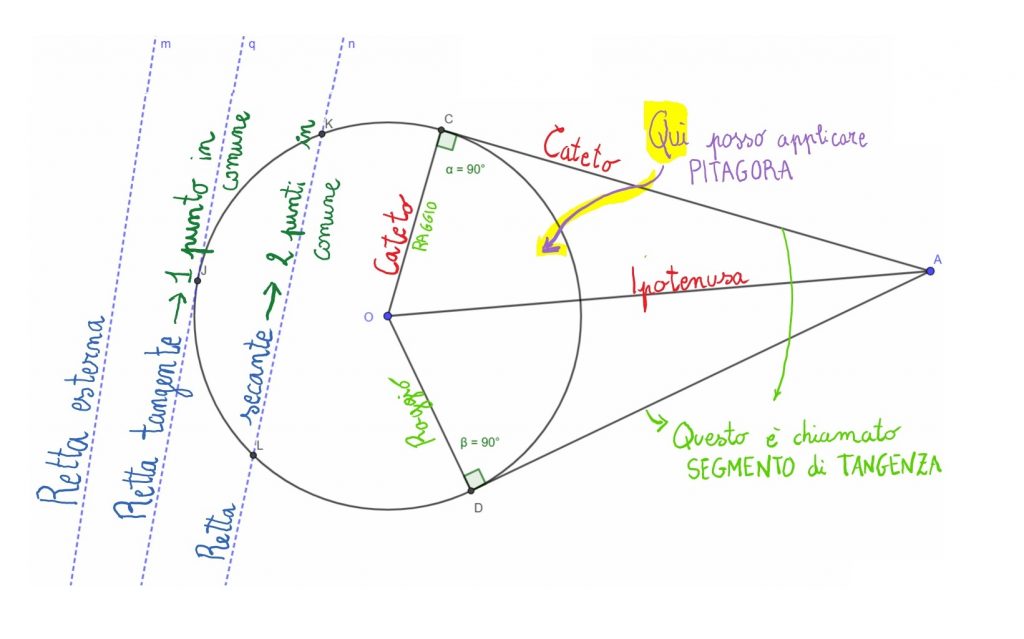 m
q
n
Retta esterna
Retta tangente → 1 punto in
comune
Retta secante → 2 punti in
comune
K
J
L
C
α = 90°
Cateto
RAGGIO
O
Raggio
β = 90°
D
Cateto
Ipotenusa
A
Quì posso applicare
PITAGORA
Questo è chiamato
SEGMENTO di TANGENZA